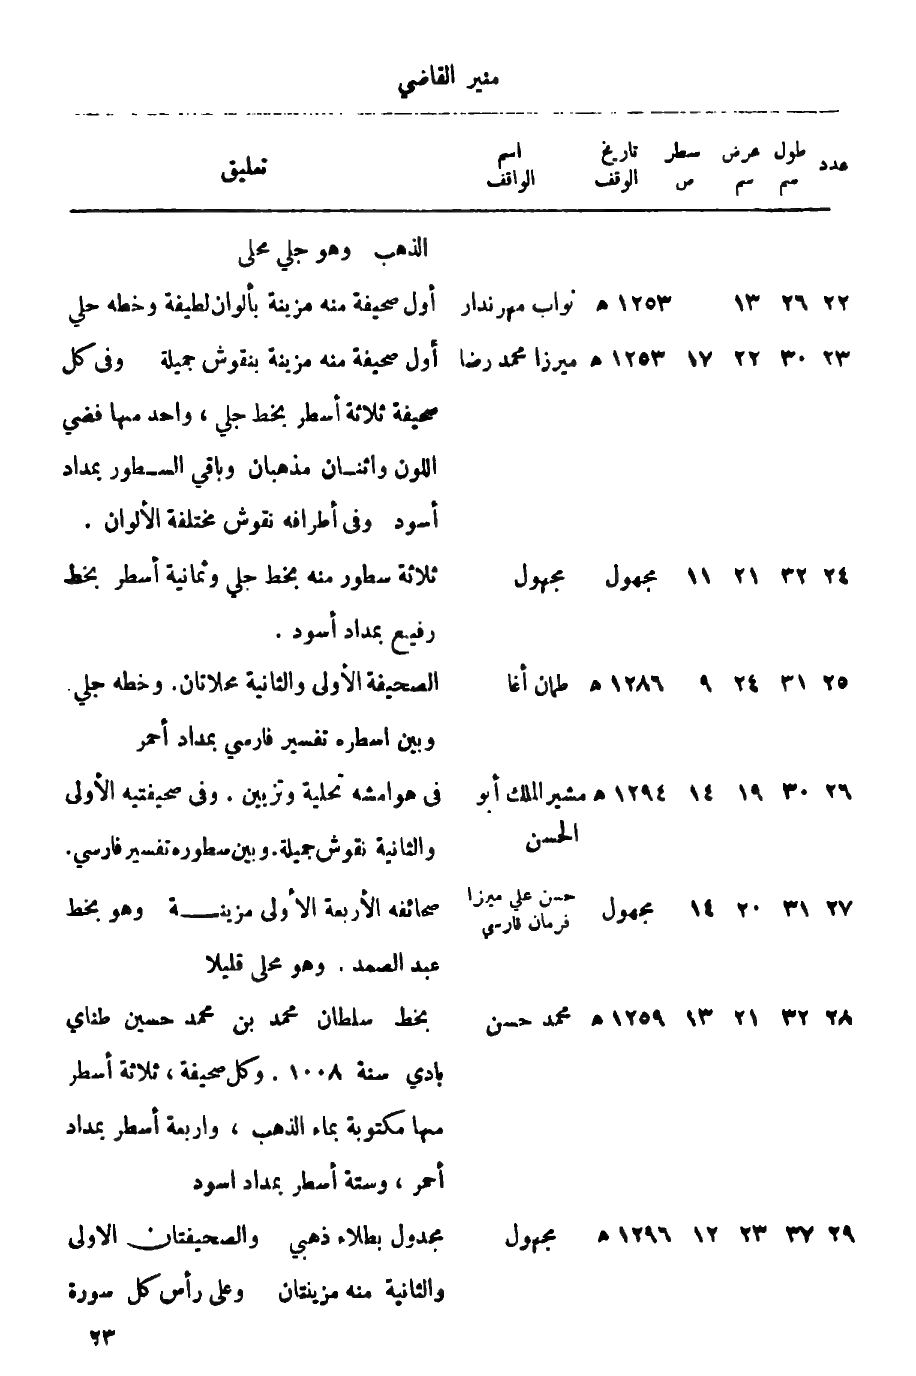 منير القاضي
عدد طول سم عرض سم سطر ص تاريخ الوقف اسم الواقف تعليق
الذهب وهو جلي محلى
٢٢ ٢٦ ١٣ ١٢٥٣ ه نواب مهرندار أول صحيفة منه مزينة بألوان لطيفة وخطه حلي
٢٣ ٣٠ ٢٢ ١٧ ١٢٥٣ ه ميرزا محمد رضا أول صحيفة منه مزينة بنقوش جميلة وفى كل
صحيفة ثلاثة أسطر بخط جلي ، واحد منها فضي
اللون واثنــان مذهبان وباقي الســطور بمداد
أسود وفى أطرافه نقوش مختلفة الألوان .
٢٤ ٣٢ ٢١ ١١ مجهول مجهول ثلاثة سطور منه بخط جلي وثمانية أسطر بخط
رفيع بمداد أسود .
٢٥ ٣١ ٢٤ ٩ ١٢٨٦ ه طمان أغا الصحيفة الأولى والثانية محلاتان. وخطه جلي.
وبين اسطره تفسير فارسي بمداد أحمر
٢٦ ٣٠ ١٩ ١٤ ١٢٩٤ ه مشير الملك أبو فى هوامشه تحلية وتزيين . وفى صحيفتيه الأولى
الحسن والثانية نقوش جميلة. وبين سطوره تفسير فارسي.
٢٧ ٣١ ٢٠ ١٤ مجهول حسن علي ميرزا صحائفه الأربعة الأولى مزينــــة وهو بخط
فرمان فارسي
عبد الصمد . وهو محلى قليلا
٢٨ ٣٢ ٢١ ١٣ ١٢٥٩ ه محمد حسن بخط سلطان محمد بن محمد حسين طناي
بادي سنة ١٠٠٨ . وكل صحيفة ، ثلاثة أسطر
منها مكتوبة بماء الذهب ، واربعة أسطر بمداد
أحمر ، وستة أسطر بمداد اسود
٢٩ ٣٧ ٢٣ ١٢ ١٢٩٦ ه مجهول مجدول بطلاء ذهبي والصحيفتان الاولى
والثانية منه مزينتان وعلى رأس كل سورة
٦٣